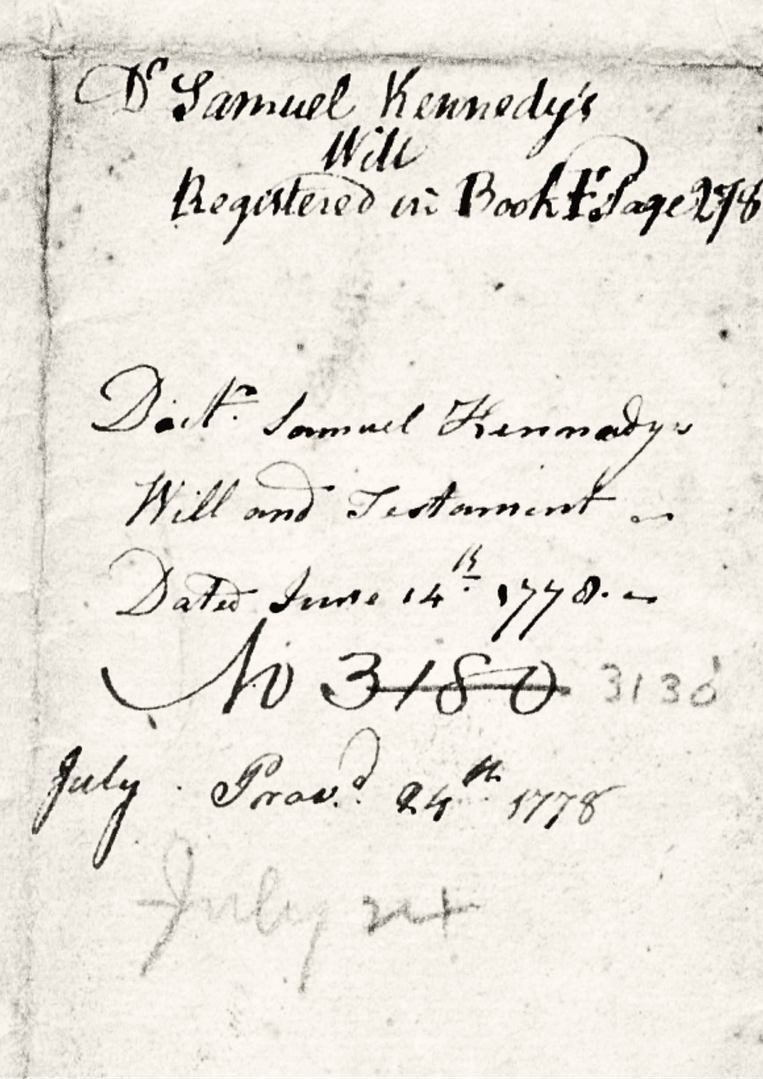 Dr Samuel Kennedy's
Will
Registered in Book F Page 278
Doctr. Samuel Kennadys
Will and Testament
Dated June 14th 1778.
No 3180 3130
July Provd. 24th 1778
July 24